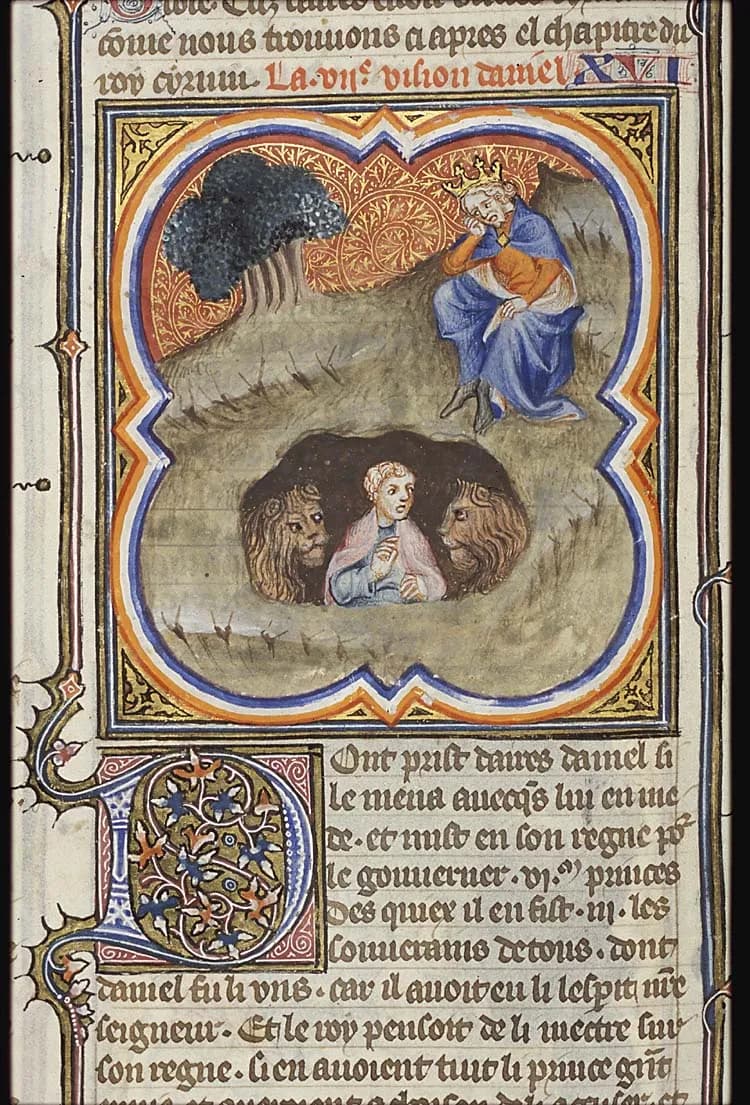 come nous trouuons ci apres el chapitre du
roy cyrum. La .vijᵉ. vision daniel XVI
Dont prist daires daniel si
le mena auecq̄s lui en me
de. et mist en son regne po᷑
le gouuerner. vi.ˣˣ princes
Des quiex il en fist .iii. les
souuerains de tous. dont
daniel fu li vns. car il auoit eu li lesperit nr̄e
seigneur. Et le roy pensoit de li mectre sur
son regne. Si en auoient tuit li prince grāt